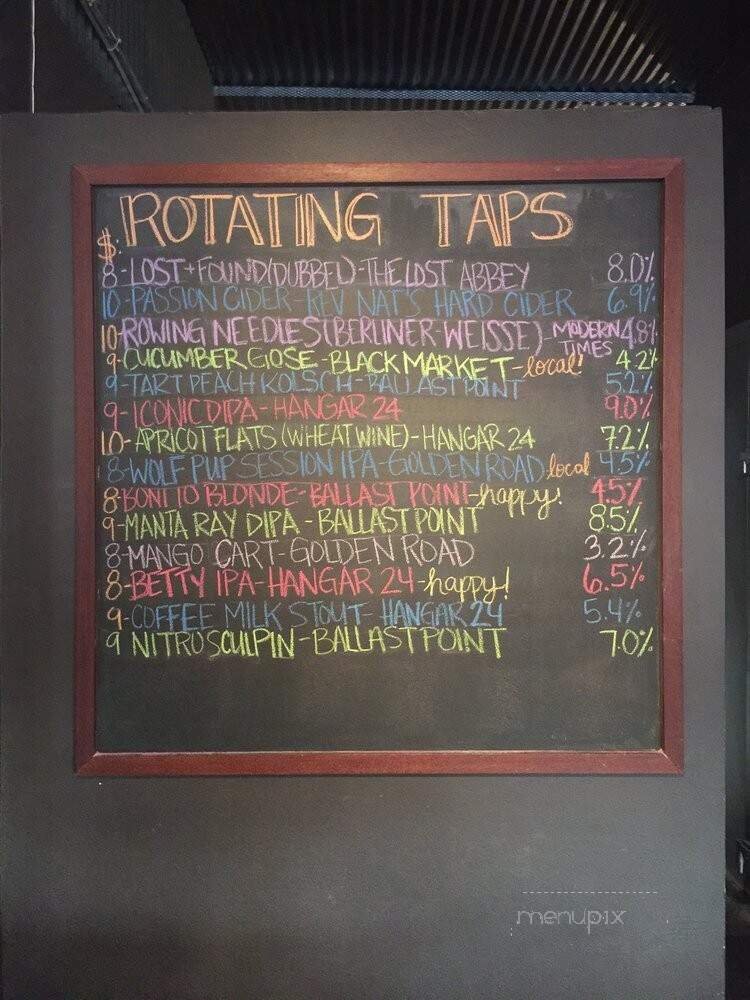 ROTATING TAPS
$
8-LOST+FOUND(DUBBEL)-THE LOST ABBEY 8.0%
10-PASSION CIDER-REV NAT'S HARD CIDER 6.9%
10-ROWING NEEDLES(BERLINER-WEISSE)-MODERN TIMES 4.8%
9-CUCUMBER GOSE-BLACK MARKET-local! 4.2%
9-TART PEACH KOLSCH-BALLAST POINT 5.2%
9-ICONIC DIPA-HANGAR 24 9.0%
10-APRICOT FLATS (WHEAT WINE)-HANGAR 24 7.2%
8-WOLF PUP SESSION IPA-GOLDEN ROAD local 4.5%
8-BONITO BLONDE-BALLAST POINT-happy! 4.5%
9-MANTA RAY DIPA-BALLAST POINT 8.5%
8-MANGO CART-GOLDEN ROAD 3.2%
8-BETTY IPA-HANGAR 24-happy! 6.5%
9-COFFEE MILK STOUT-HANGAR 24 5.4%
9 NITRO SCULPIN-BALLAST POINT 7.0%
menupix